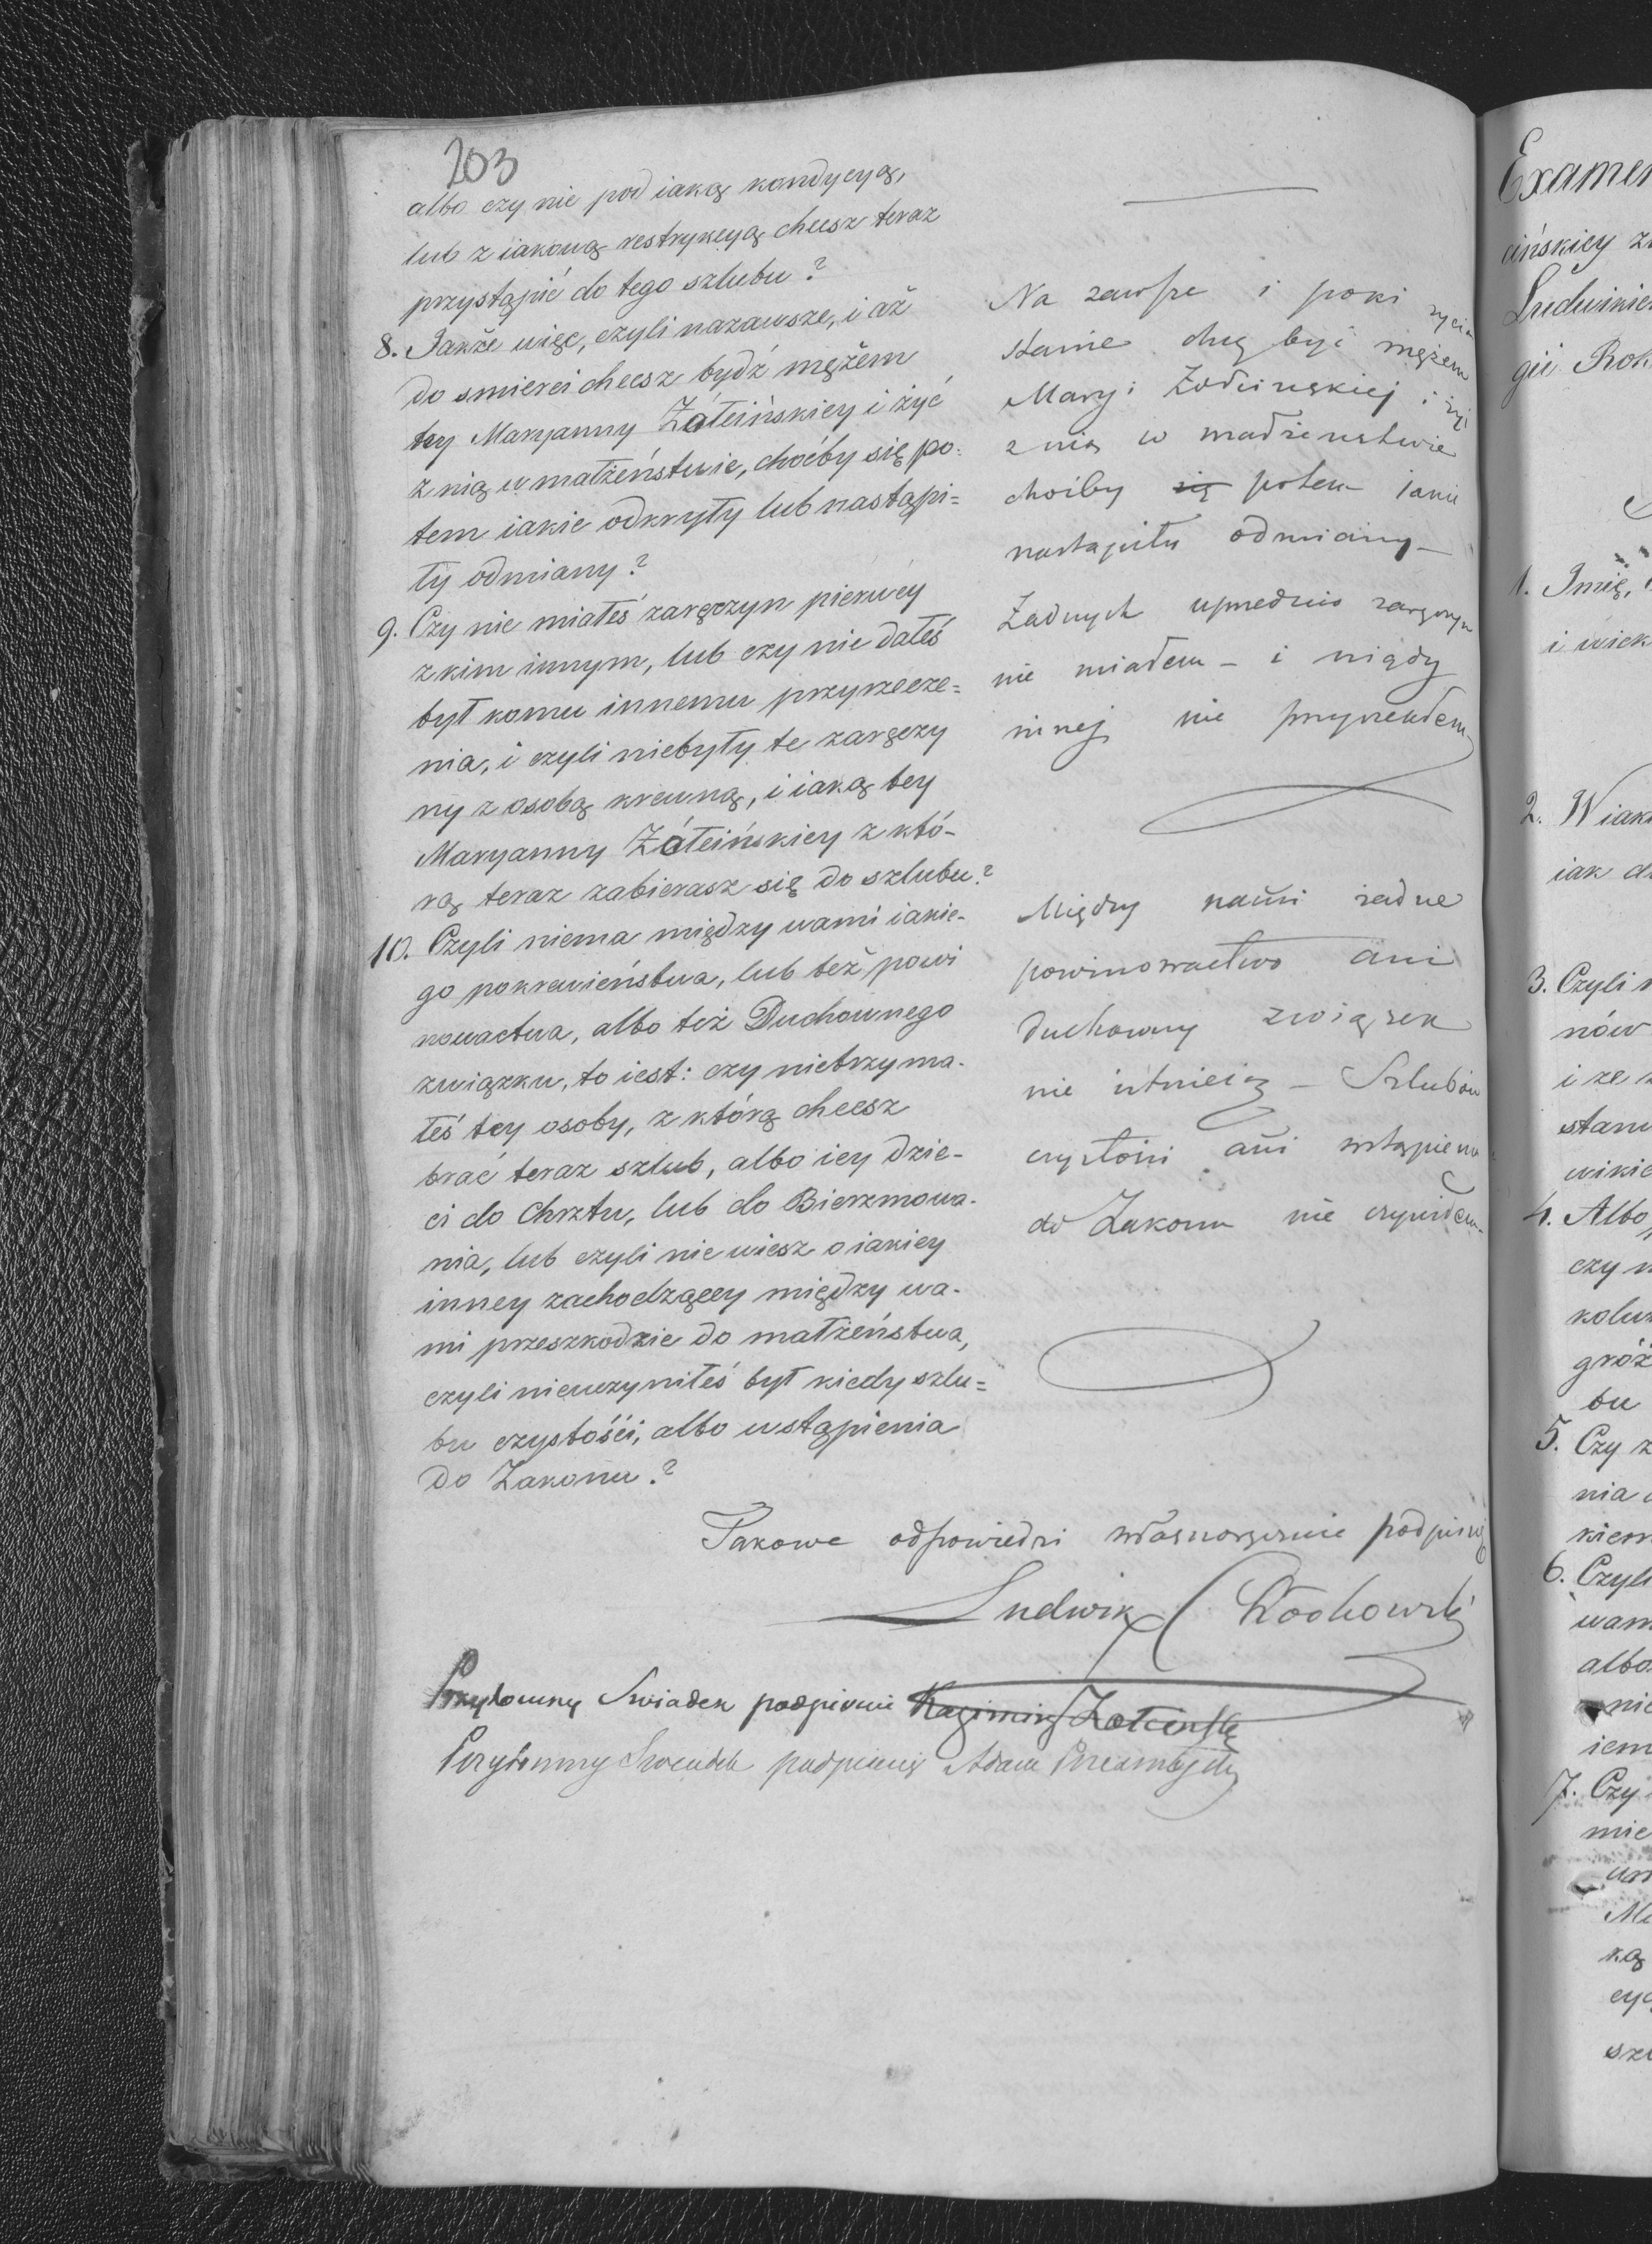 203
albo czy nie pod iaką kondycyą,
lub z iakową restrykcyą chcesz teraz
przystąpić do tego szlubu?
8. Jakże więc, czyli nazawsze, i aż
do smierci chcesz bydź mężem
tey Maryanny Żółcińskiey i żyć
z nią w małżeństwie, choćby się po-
tem iakie odkryły lub nastąpi=
ły odmiany?
9. Czy nie miałeś zaręczyn pierwéy
z kim innym, lub czy nie dałeś
był komu innemu przyrzecze=
nia, i czyli niebyły te zaręczy
ny z osobą krewną, i iaką tey
Maryanny Żółcińskiey z któ-
rą teraz zabierasz się do szlubu?
10. Czyli niema między wami iakie-
go pokrewieństwa, lub też powi
nowactwa, albo też Duchownego
związku, to iest: czy nietrzyma-
łeś tey osoby, z którą chcesz
brać teraz szlub, albo iey dzie-
ci do Chrztu, lub do Bierzmowa-
nia, lub czyli nie wiesz o iakiey
inney zachodzącey między wa-
mi przeszkodzie do małżeństwa,
czyli nieuczyniłeś był kiedy szlu=
bu czystości, albo wstąpienia
do Zakonu?
Na zawsze i poki życia
stanie chcę być mężem
Maryi Żołcinskiej i żyć
z nią w madżenstwie
choćby się potem iakie
nastąpiłu odmiany _
Żadnych uprzednio zaręczyn
nie miadem _ i nigdy
innej nie przyrzekdem
Między nami żadne
powinowactwo ani
duchowny związek
nie istnieią _ Szlubów
czystości ani wstąpienia
do Zakonu nie czynidem
Takowe odpowiedzi własnoręcznie podpisuię
Ludwik Rochowski
Przytomny Swiadek podpisuie Kazimirz Żołcinski
Przytomny Swiadek podpisuię Adam
Examen
cińskiey za
Ludwikie
gii Roh
1. Imię,
i wiek
2. W iak
iak d
3. Czyli n
nów
i ze
stanu
wikie
4. Albo
czy n
kolw
gróź
bu
5. Czy z
nia
kiem
6. Czyli
wam
albo
nie
iem
7. Czy
mie
um
Ma
ką
cyą
szl